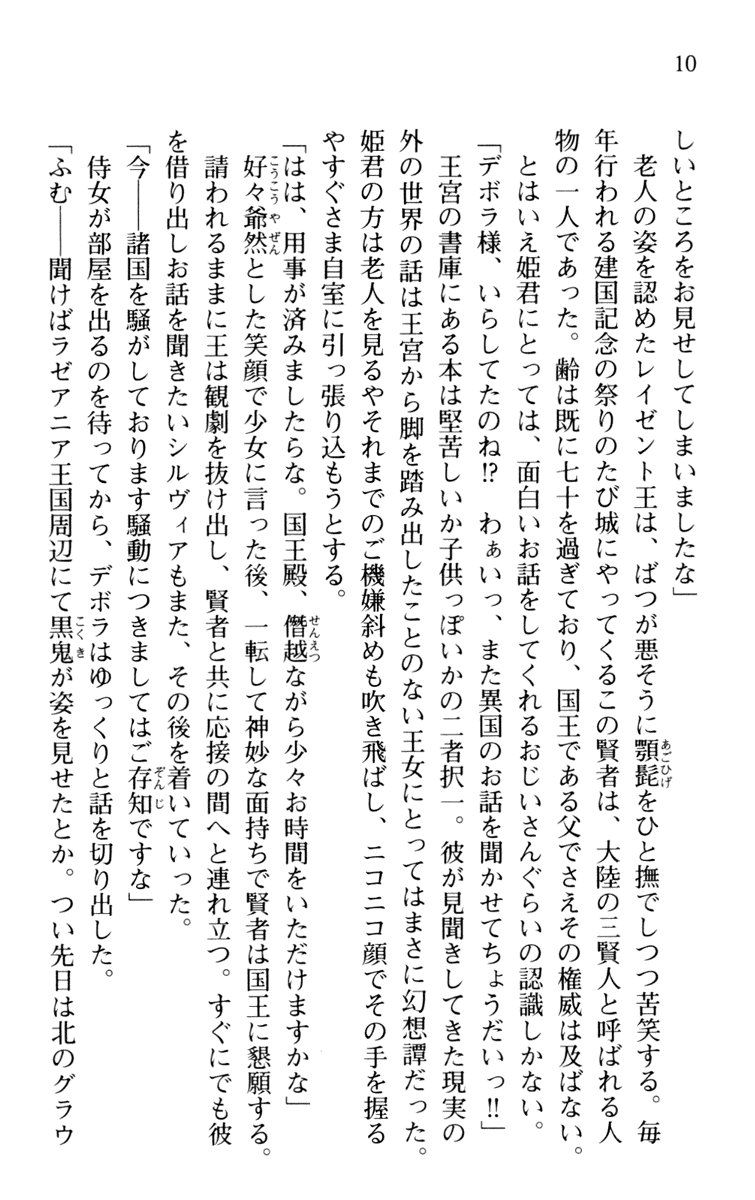 10
しいところをお見せしてしまいましたな」
　老人の姿を認めたレイゼント王は、ばつが悪そうに顎髭をひと撫でしつつ苦笑する。毎
年行われる建国記念の祭りのたび城にやってくるこの賢者は、大陸の三賢人と呼ばれる人
物の一人であった。齢は既に七十を過ぎており、国王である父でさえその権威は及ばない。
　とはいえ姫君にとっては、面白いお話をしてくれるおじいさんぐらいの認識しかない。
「デボラ様、いらしてたのね!?　わぁいっ、また異国のお話を聞かせてちょうだいっ!!」
　王宮の書庫にある本は堅苦しいか子供っぽいかの二者択一。彼が見聞きしてきた現実の
外の世界の話は王宮から脚を踏み出したことのない王女にとってはまさに幻想譚だった。
姫君の方は老人を見るやそれまでのご機嫌斜めも吹き飛ばし、ニコニコ顔でその手を握る
やすぐさま自室に引っ張り込もうとする。
「はは、用事が済みましたらな。国王殿、僭越ながら少々お時間をいただけますかな」
　好々爺然とした笑顔で少女に言った後、一転して神妙な面持ちで賢者は国王に懇願する。
　請われるままに王は観劇を抜け出し、賢者と共に応接の間へと連れ立つ。すぐにでも彼
を借り出しお話を聞きたいシルヴィアもまた、その後を着いていった。
「今――諸国を騒がしております騒動につきましてはご存知ですな」
　侍女が部屋を出るのを待ってから、デボラはゆっくりと話を切り出した。
「ふむ――聞けばラゼアニア王国周辺にて黒鬼が姿を見せたとか。つい先日は北のグラウ
あごひげ
せんえつ
こうこうやぜん
ぞんじ
こくき